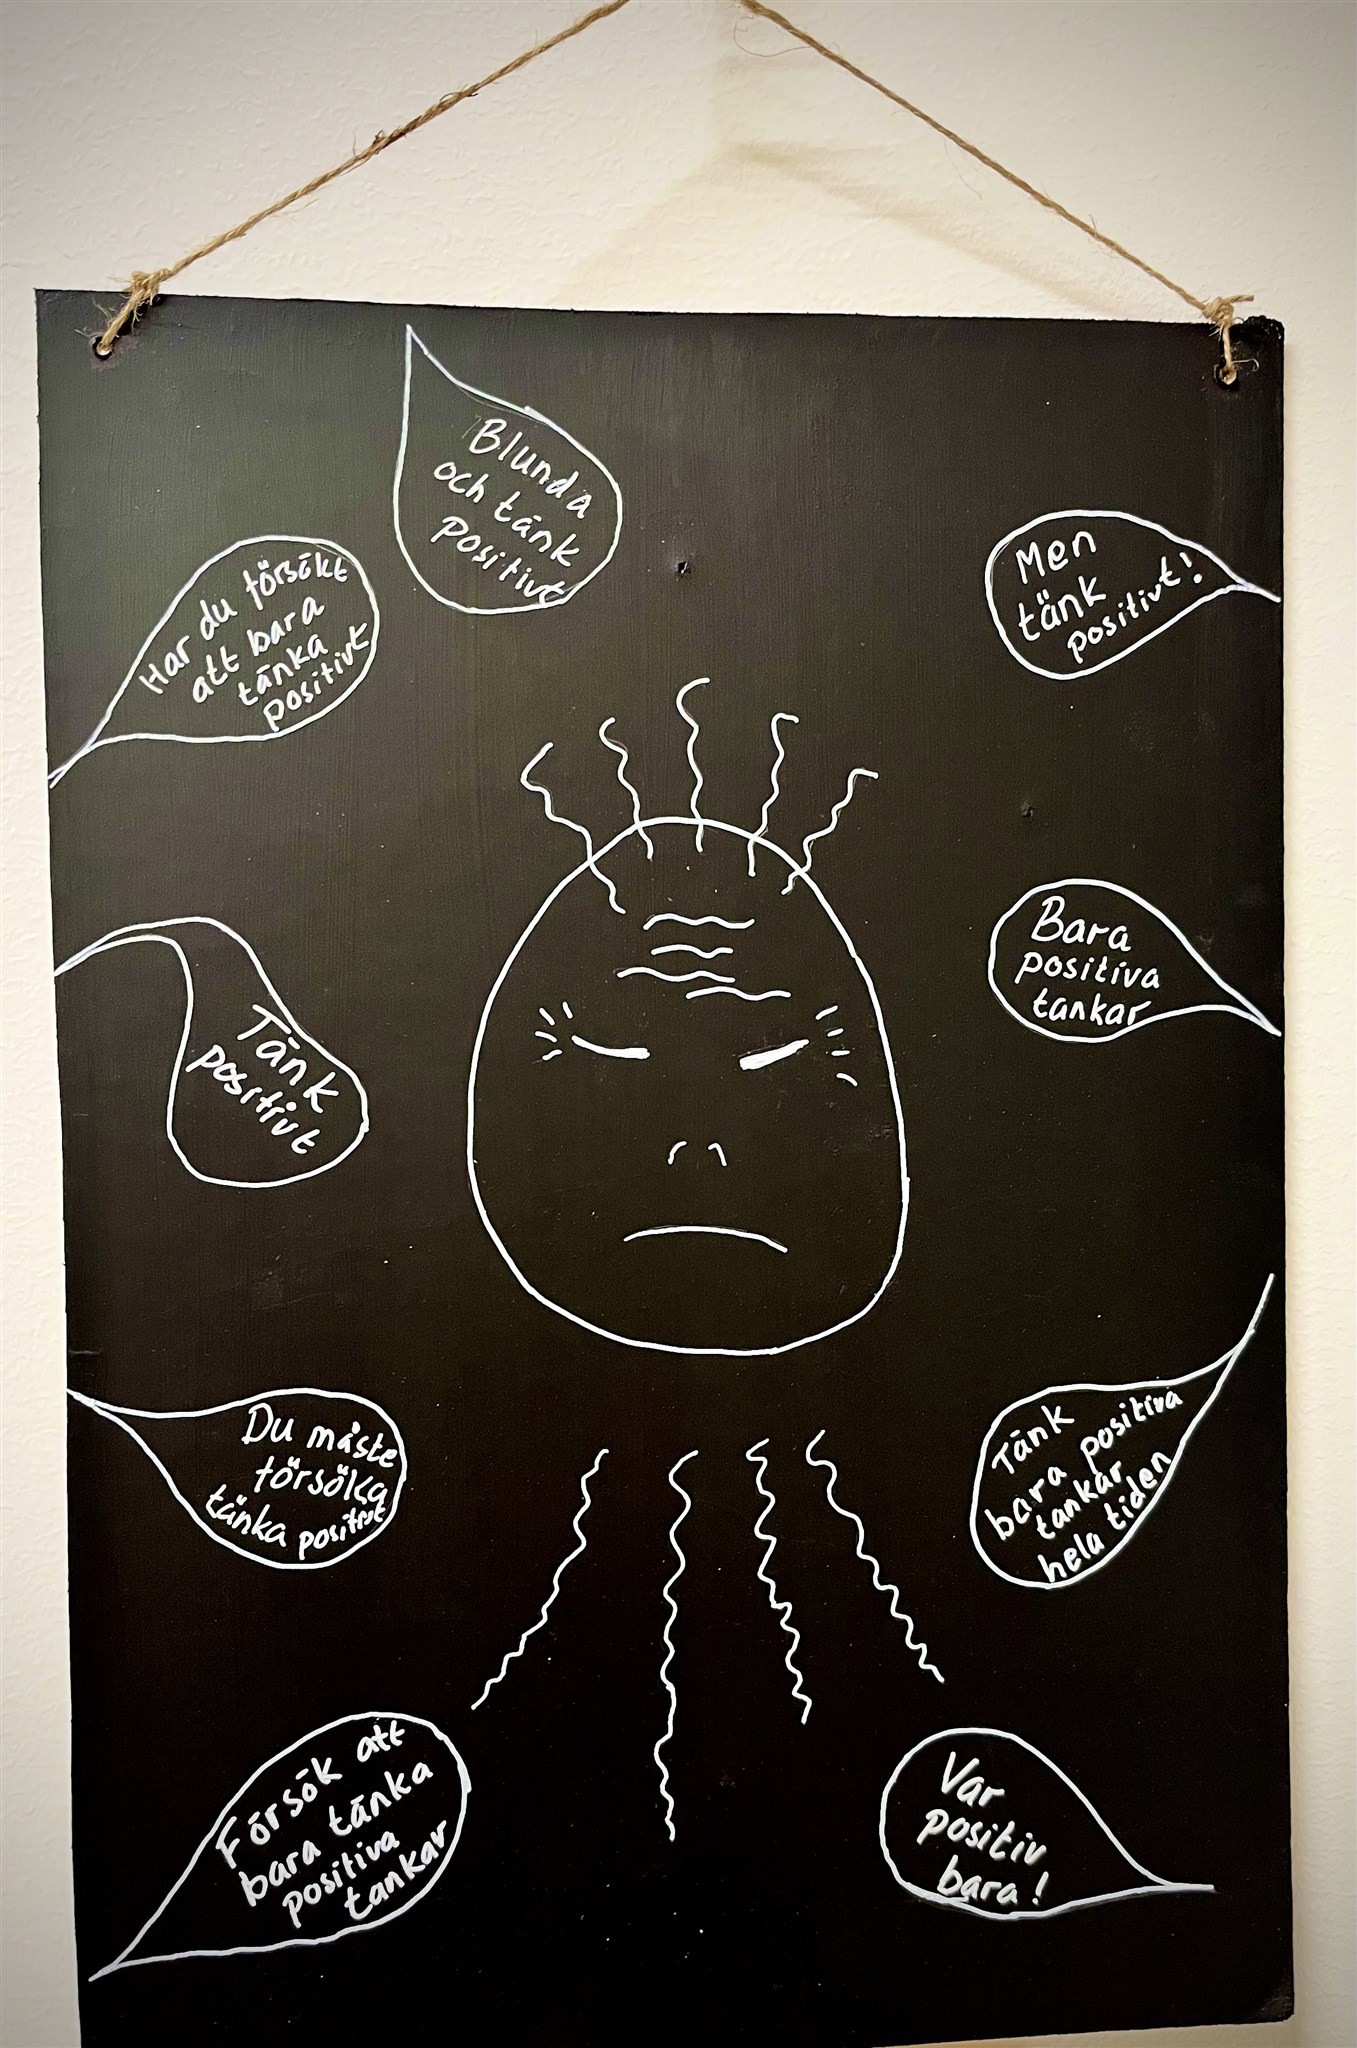 Blunda
och tänk
positivt
Har du försökt
att bara
tänka
positivt
Men
tänk
positivt!
Tänk
positivt
Bara
positiva
tankar
Du måste
försöka
tänka positivt
Tänk
bara positiva
tankar
hela tiden
Försök att
bara tänka
positiva
tankar
Var
positiv
bara!